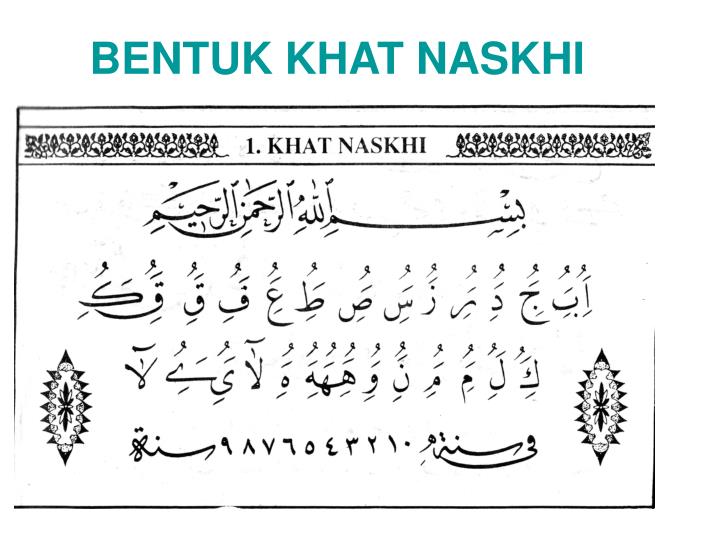 BENTUK KHAT NASKHI
1. KHAT NASKHI
بِسْمِ اللهِ الرَّحْمٰنِ الرَّحِيْمِ
اَ بُ جُ دُ رُ زُ سُ صُ طُ عُ فُ قُ قُ كُ
كُ لُ مُ مُ نُ وُ هُ هُ هُ لآ يُ ےُ لآ
في سنة ٩ ٨ ٧ ٦ ٥ ٤ ٣ ٢ ١٠ سنة